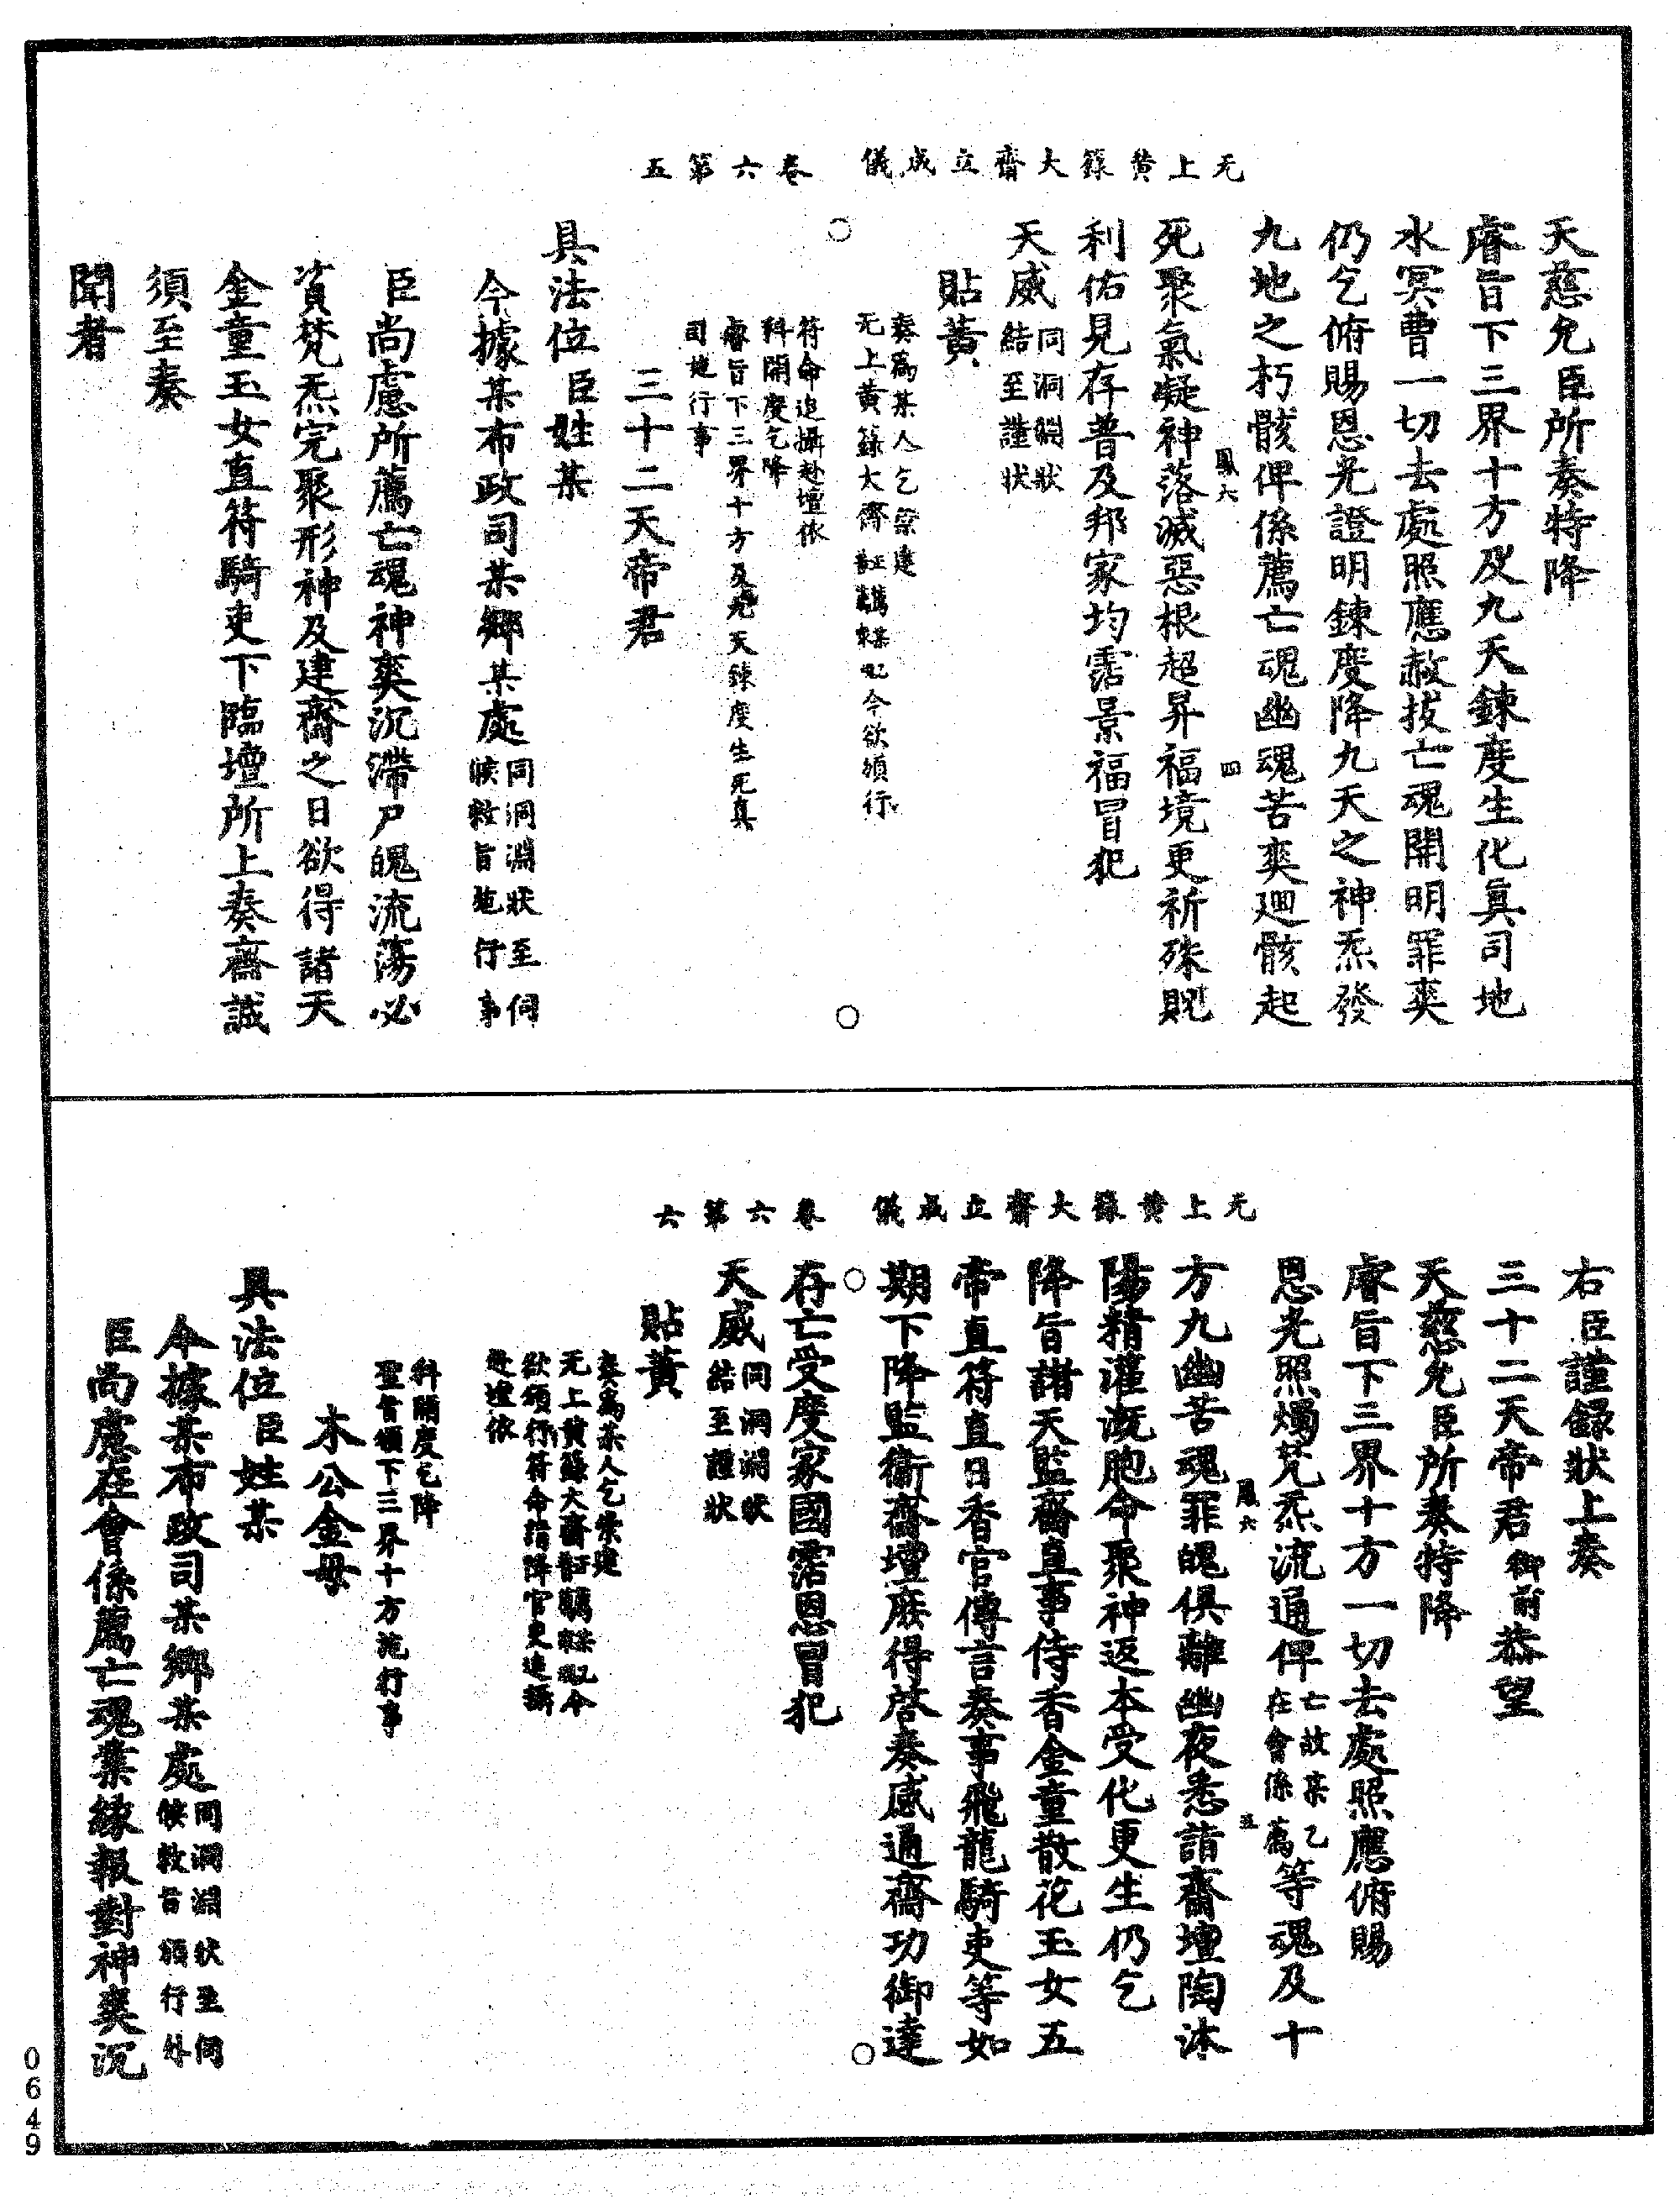 无上黃籙大齋立成儀　卷六第五
天慈允臣所奏特降
睿旨下三界十方及九天鍊度生化真司地
水冥曹一切去處照應赦拔亡魂開明罪爽
仍乞俯賜恩光證明鍊度降九天之神炁發
九地之朽骸俾係薦亡魂幽魂苦爽迴骸起
鳳六　四
死聚氣凝神落滅惡根超昇福境更祈殊貺
利佑見存普及邦家均霑景福冒犯
天威同洞淵狀結至謹狀
貼黃
奏為某人乞崇建
无上黃籙大齋薦某乞今欲頒行
符命追攝赴壇依
科開度乞降
睿旨下三界十方及九天鍊度生死真
司施行事
三十二天帝君
具法位臣姓某
今據某布政司某鄉某處同洞淵狀至伺候敕旨施行事
臣尚慮所薦亡魂神爽沉滯尸魄流蕩必
資梵炁完聚形神及建齋之日欲得諸天
金童玉女直符騎吏下臨壇所上奏齋誠
須至奏
聞者
无上黃籙大齋立成儀　卷六第六
右臣謹錄狀上奏
三十二天帝君御前恭望
天慈允臣所奏特降
睿旨下三界十方一切去處照應俯賜
恩光照燭梵炁流通俾亡故某乙在會係薦等魂及十
鳳六　五
方九幽苦魂罪魄俱離幽夜悉詣齋壇陶沐
陽精灌溉胞命聚神返本受化更生仍乞
降旨諸天監齋直事侍香金童散花玉女五
帝直符直日香官傳言奏事飛龍騎吏等如
期下降監衛齋壇庶得啓奏感通齋功御達
存亡受度家國霑恩冒犯
天威同洞淵狀結至謹狀
貼黃
奏為某人乞崇建
无上黃籙大齋薦某乞今
欲頒行符命請降官吏追攝
赴壇依
科開度乞降
聖旨頒下三界十方施行事
木公金母
具法位臣姓某
今據某布政司某鄉某處同洞淵狀至伺候敕旨頒行外
臣尚慮在會係薦亡魂業緣報對神爽沉
0649